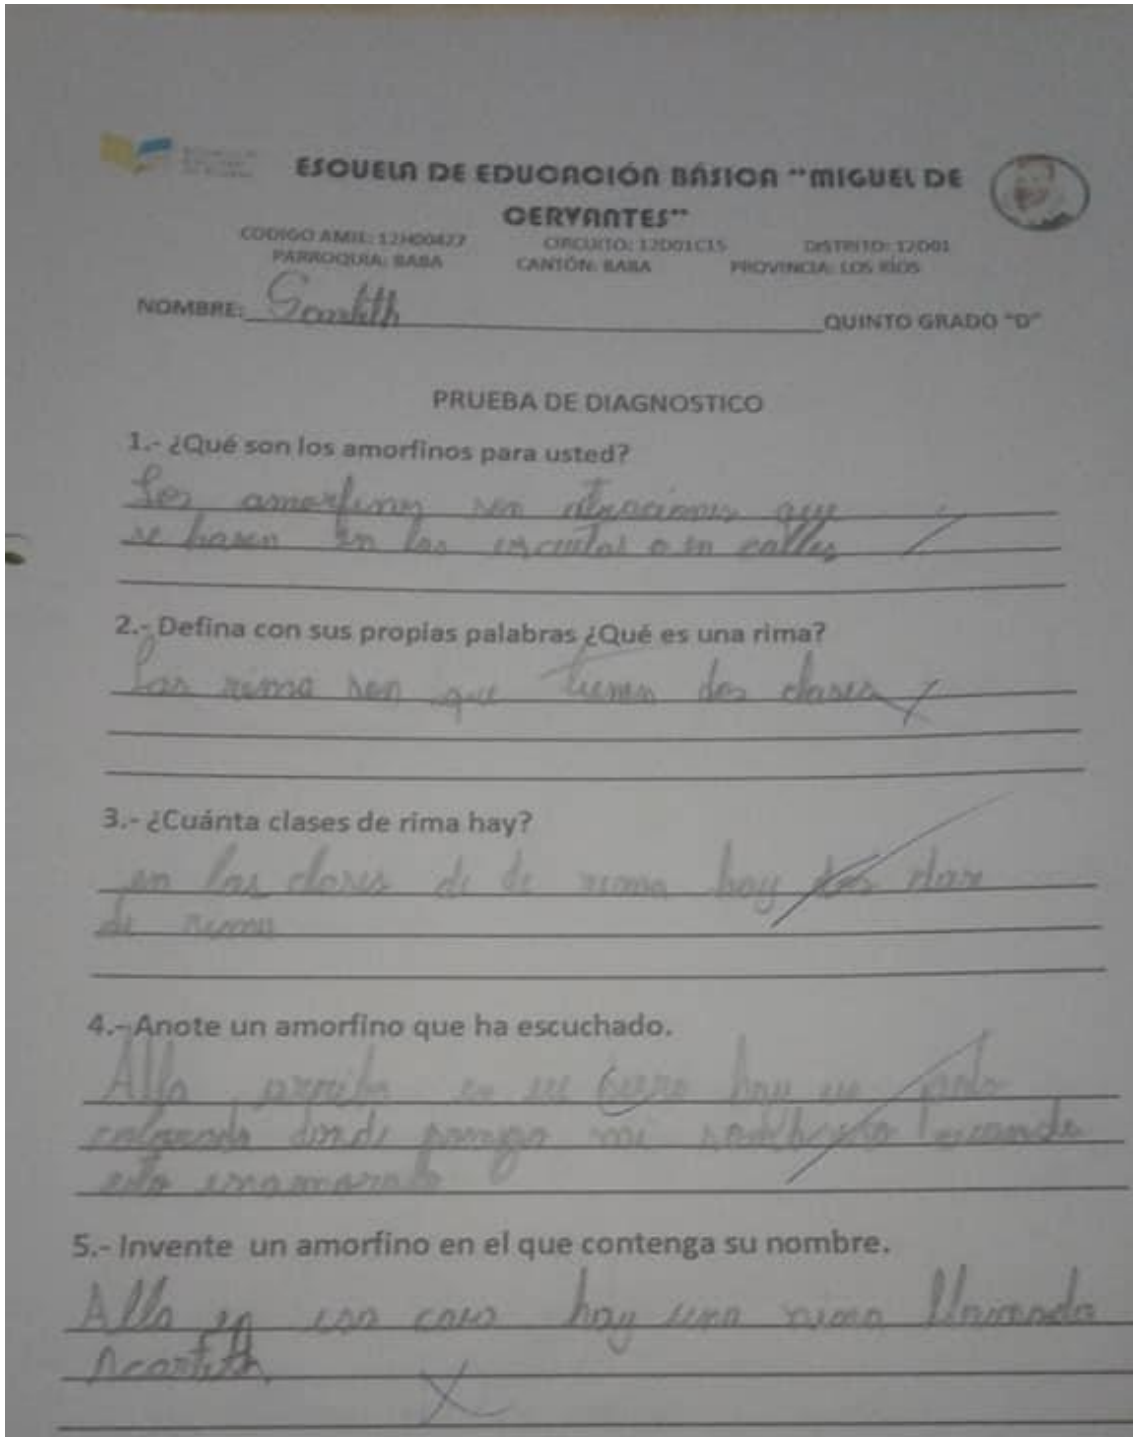 ESCUELA DE EDUCACIÓN BÁSICA "MIGUEL DE
CERVANTES"
CODIGO AMIE: 12H00427 CIRCUITO: 12D01C15 DISTRITO: 12D01
PARROQUIA: BABA CANTÓN: BABA PROVINCIA: LOS RÍOS
NOMBRE: Scarlith QUINTO GRADO "D"
PRUEBA DE DIAGNOSTICO
1.- ¿Qué son los amorfinos para usted?
Los amorfinos son que
se hasen en las escuelas o en calles
2.- Defina con sus propias palabras ¿Qué es una rima?
Las rima son que tienen dos clases
3.- ¿Cuánta clases de rima hay?
en las clases de de rima hay dos clase
de rima
4.- Anote un amorfino que ha escuchado.
Alla arriba en ese cerro hay un palo
colorado donde pongo mi sombrero cuando
esta enamorado
5.- Invente un amorfino en el que contenga su nombre.
Alla en esa casa hay una llamada
Scarlith